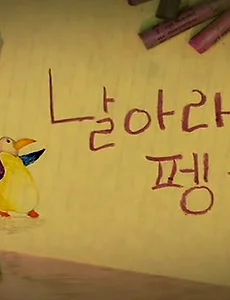 날아라
펭